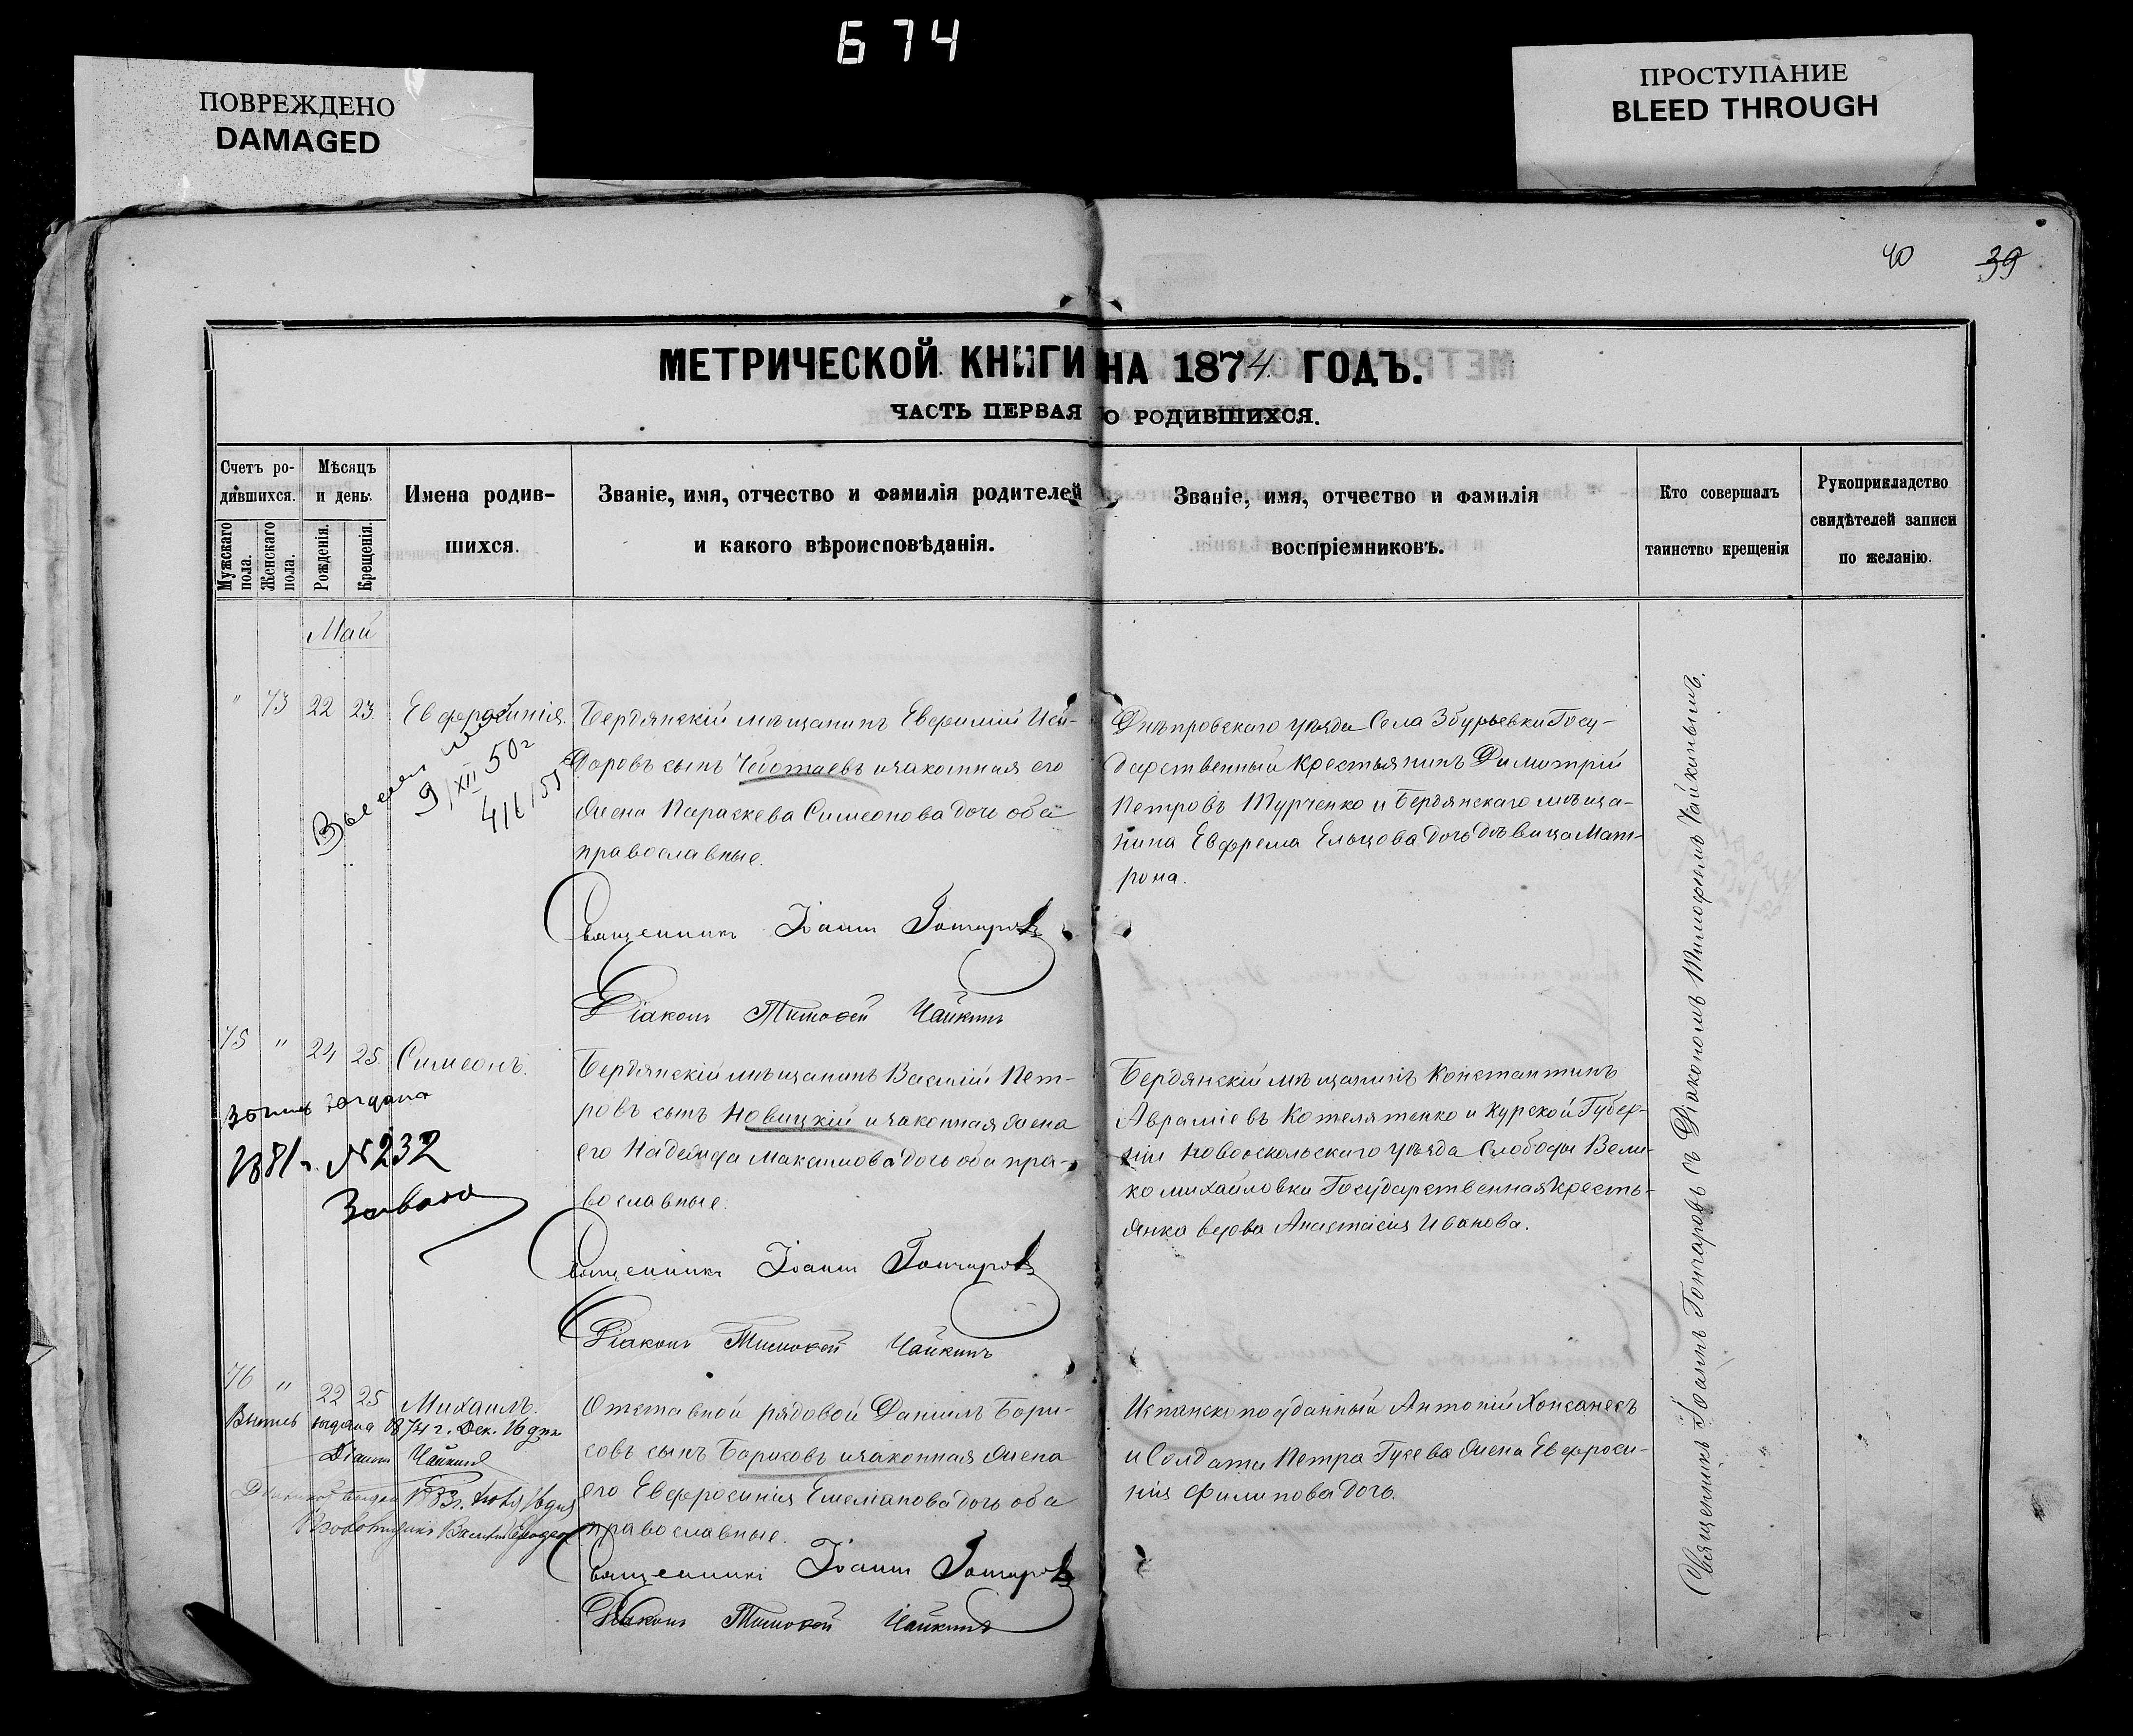 674
ПОВРЕЖДЕНО
DAMAGED
ПРОСТУПАНИЕ
BLEED THROUGH
40 39
МЕТРИЧЕСКОЙ КНИГИ НА 1874 ГОДЪ.
ЧАСТЬ ПЕРВАЯ О РОДИВШИХСЯ.
Счетъ ро-
дившихся.
Мужскаго
пола.
Женскаго
пола.
Мѣсяцъ
и день.
Рожденія.
Крещенія.
Имена родив-
шихся.
Званіе, имя, отчество и фамилія родителей
и какого вѣроисповѣданія.
Званіе, имя, отчество и фамилія
воспріемниковъ.
Кто совершалъ
таинство крещенія
Рукоприкладство
свидѣтелей записи
по желанію.
Май
" 73 22 23 Евфросинія.
9/XII 50г
Бердянскій мѣщанинъ Евфимій Иси-
доровъ сынъ Чеботаевъ и законная его
жена Параскева Симеонова дочь оба
православные.
Священникъ Іоаннъ Гончаровъ
Діаконъ Тимофей Чайкинъ
Днѣпровскаго уѣзда Села Збурьевки Госу-
дарственный крестьянинъ Димитрій
Петровъ Турченко и Бердянскаго мѣща-
нина Евфрема Ельцова дочь дѣвица Мат-
рона.
75 " 24 25 Симеонъ.
выдана
1881 г. № 232
Бердянскій мѣщанинъ Василій Пет-
ровъ сынъ Новицкій и законная жена
его Надежда Максимова дочь оба пра-
вославные.
Священникъ Іоаннъ Гончаровъ
Діаконъ Тимофей Чайкинъ
Бердянскій мѣщанинъ Константинъ
Авраміевъ Котелятенко и Курской Губер-
ніи Новооскольскаго уѣзда Слободы Вели-
комихайловки Государственная кресть-
янка вдова Анастасія Иванова.
76 " 22 25 Михаилъ.
Выпись выдана 1874 г. Дек. 16 дня
Діаконъ Чайкинъ
Отставной рядовой Даніилъ Бори-
совъ сынъ Борисовъ и законная жена
его Евфросинія Емеліанова дочь оба
православные.
Священникъ Іоаннъ Гончаровъ
Діаконъ Тимофей Чайкинъ
Испанско подданный Антоній Хонсанесъ
и Солдата Петра Гусева жена Евфроси-
нія Филипова дочь.
Священникъ Іоаннъ Гончаровъ съ Діакономъ Тимофеемъ Чайкинымъ.